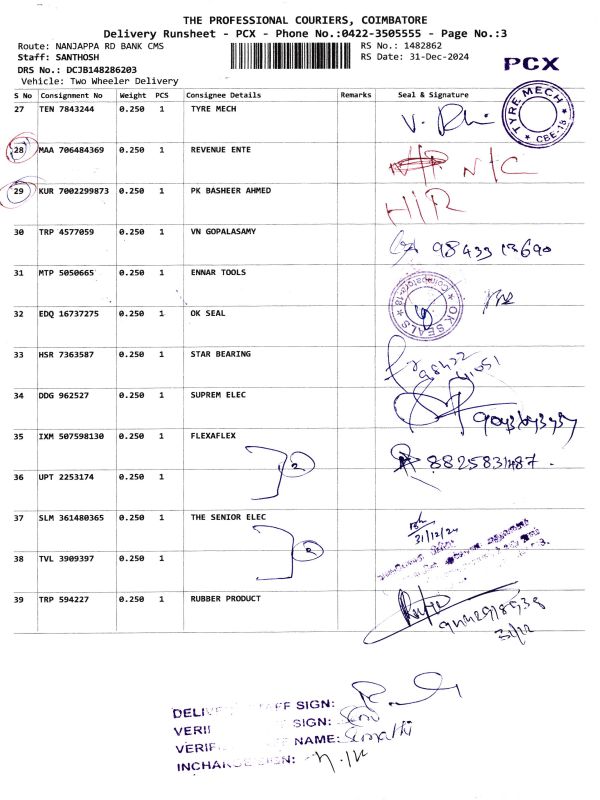 THE PROFESSIONAL COURIERS, COIMBATORE
Delivery Runsheet - PCX - Phone No.:0422-3505555 - Page No.:3
Route: NANJAPPA RD BANK CMS
RS No.: 1482862
Staff: SANTHOSH
RS Date: 31-Dec-2024
PCX
DRS No.: DCJB148286203
Vehicle: Two Wheeler Delivery
S No Consignment No Weight PCS Consignee Details Remarks Seal & Signature
27 TEN 7843244 0.250 1 TYRE MECH
TYRE MECH
CBE-18
28 MAA 706484369 0.250 1 REVENUE ENTE N/C
29 KUR 7002299873 0.250 1 PK BASHEER AHMED
30 TRP 4577059 0.250 1 VN GOPALASAMY
31 MTP 5050665 0.250 1 ENNAR TOOLS
32 EDQ 16737275 0.250 1 OK SEAL
OK SEALS
Coimbatore-18
33 HSR 7363587 0.250 1 STAR BEARING
34 DDG 962527 0.250 1 SUPREM ELEC
35 IXM 507598130 0.250 1 FLEXAFLEX
2
36 UPT 2253174 0.250 1
37 SLM 361480365 0.250 1 THE SENIOR ELEC
31/12/24
2
38 TVL 3909397 0.250 1
39 TRP 594227 0.250 1 RUBBER PRODUCT
31/12
STAFF SIGN:
SIGN:
NAME: Sumathi
SIGN: